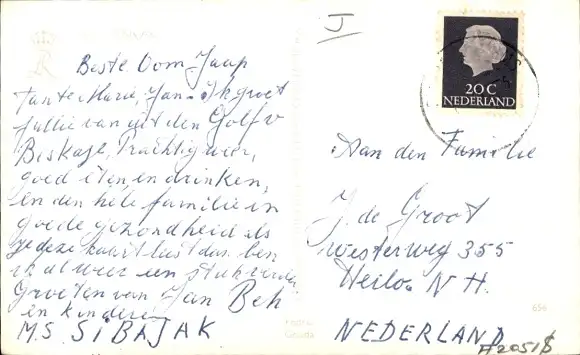 Beste Oom Jaap
Tante Marie, Jan. Ik groet
jullie van uit den Golf v
Biskaje, Prachtig weer,
goed eten en drinken,
en den hele familie in
goede gezondheid als
je deze kaart leest dan ben
ik al weer een stuk verder
Groeten van Jan Beh
en kinderen
M.S. SIBAJAK
J
20 C
NEDERLAND
Aan den Familie
J. de Groot
Westerweg 355
Heiloo N H.
NEDERLAND